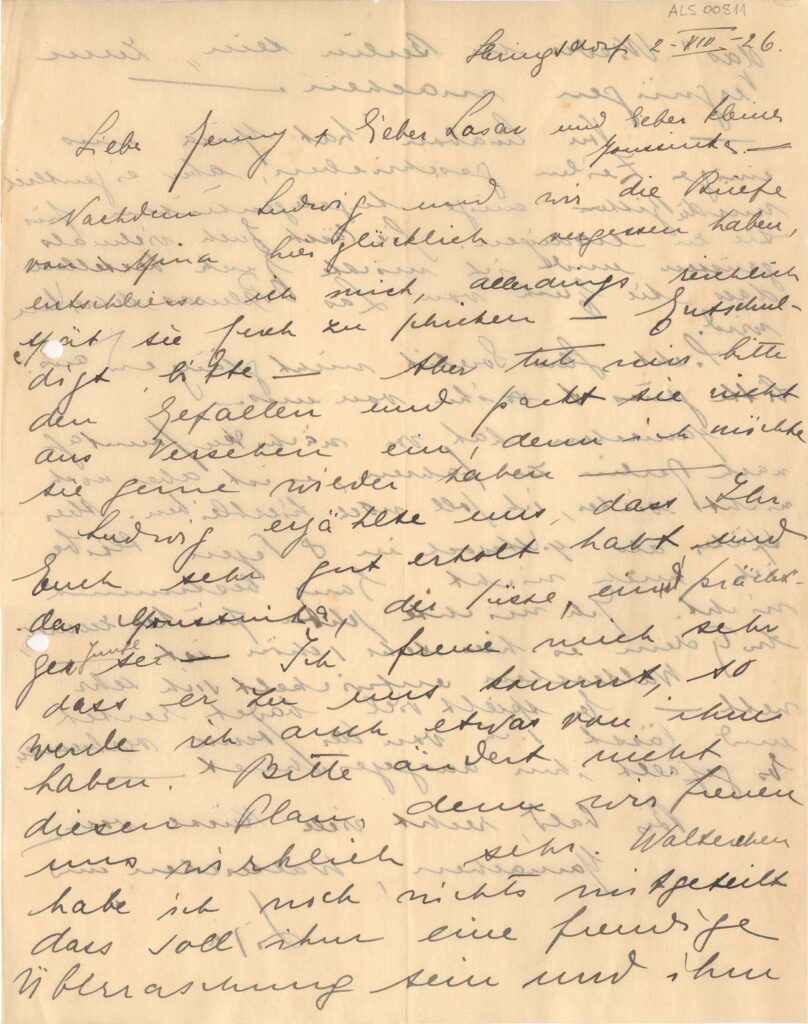 ALS 00811
Heringsdorf 2-VIII-26.
Liebe Jenny, lieber Lasar und lieber kleiner
Moussinka. —
Nachdem Ludwig und wir die Briefe
von Mina hier glücklich vergessen haben,
entschliess ich mich, allerdings reichlich
spät sie Euch zu schicken — Entschul-
digt bitte — Aber tut mir bitte
den Gefallen und packt sie nicht
aus Versehen ein, denn ich möchte
sie gerne wieder haben —
Ludwig erzählte uns, dass Ihr
Euch sehr gut erholt habt und
das Moussinka, der süsse, ein prächti-
ger Junge sei — Ich freue mich sehr
dass er zu uns kommt, so
werde ich auch etwas von ihm
haben. Bitte ändert nicht
diesen Plan, denn wir freuen
uns wirklich sehr. Walterchen
habe ich noch nichts mitgeteilt
dass soll ihm eine freudige
Überraschung sein und ihm